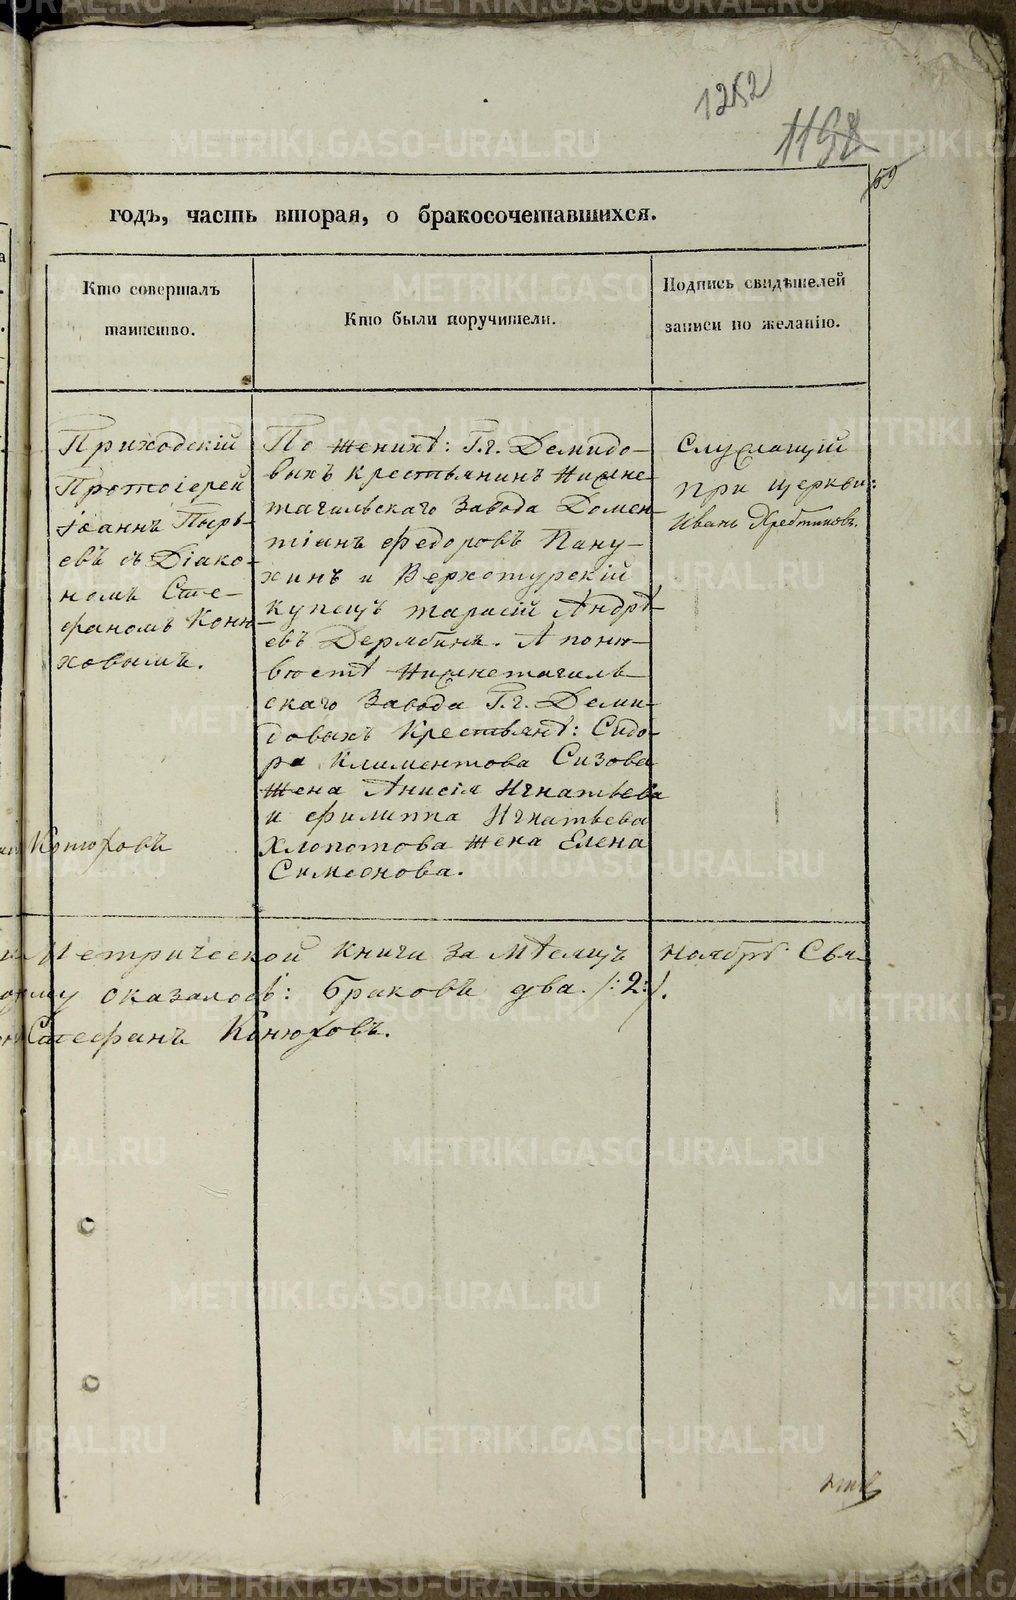 METRIKI.GASO-URAL.RU
1252
1198
59
годъ, часть вторая, о бракосочетавшихся.
Кто совершалъ
таинство.
Кто были поручители.
Подпись свидѣтелей
записи по желанію.
Приходскій
Протоіерей
Іоаннъ Пырь-
евъ съ Діако-
номъ Сте-
фаномъ Коню-
ховымъ.
По женихѣ: Г.г. Демидо-
выхъ крестьянинъ Нижне-
тагильскаго Завода Домен-
тіанъ Федоровъ Пану-
хинъ и Верхотурскій
купецъ Тарасій Андрѣ-
евъ Дерябинъ. А по не-
вѣстѣ Нижнетагиль-
скаго Завода Г.г. Деми-
довыхъ Крестьянѣ: Сидо-
ра Климентова Сизова
жена Анисія Игнатьева
и Филиппа Игнатьева
Хлопотова жена Елена
Симеонова.
Служащій
при церкви:
Иванъ
Конюховъ
Метрической книги за мѣсяцъ Ноябрь Свя-
оказалось: браковъ два /:2:/.
Стефанъ Конюховъ.